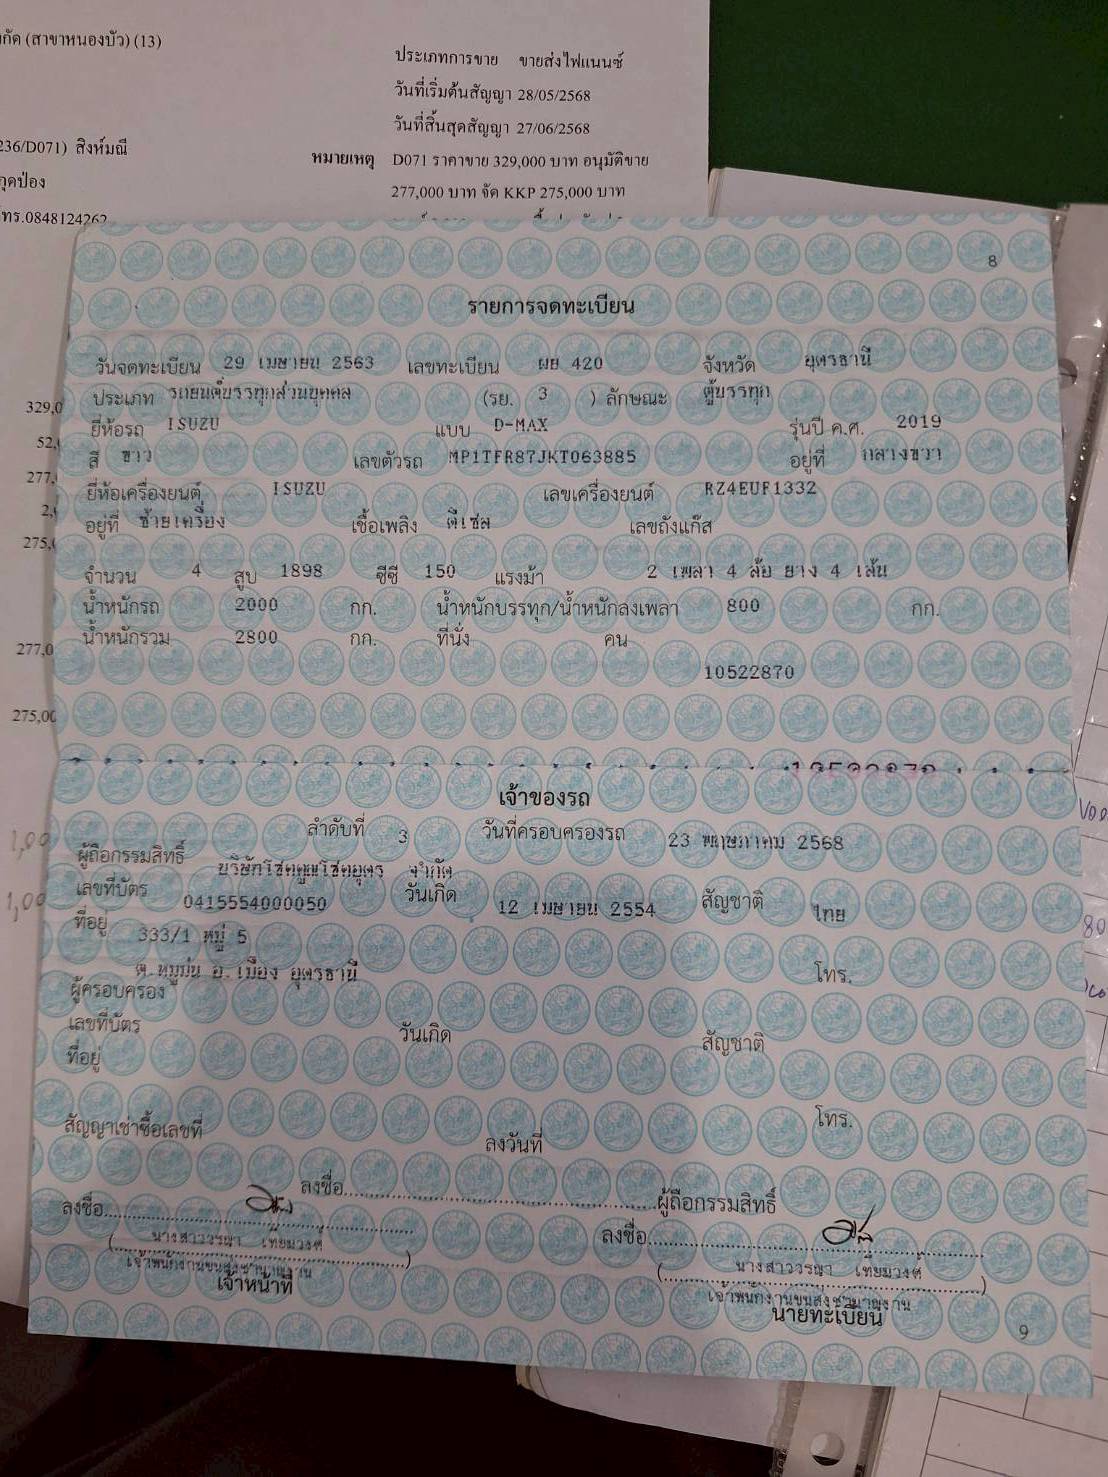 กัด (สาขาหนองบัว) (13)
ประเภทการขาย ขายส่งไฟแนนซ์
วันที่เริ่มต้นสัญญา 28/05/2568
วันที่สิ้นสุดสัญญา 27/06/2568
236/D071) สิงห์มณี
หมายเหตุ D071 ราคาขาย 329,000 บาท อนุมัติขาย
กุดป่อง
277,000 บาท จัด KKP 275,000 บาท
โทร.0848124262
8
รายการจดทะเบียน
วันจดทะเบียน 29 เมษายน 2563 เลขทะเบียน ผย 420 จังหวัด อุดรธานี
ประเภท รถยนต์บรรทุกส่วนบุคคล (รย. 3 ) ลักษณะ ตู้บรรทุก
329,0
ยี่ห้อรถ ISUZU แบบ D-MAX รุ่นปี ค.ศ. 2019
52,
สี ขาว เลขตัวรถ MP1TFR87JKT063885 อยู่ที่ กลางขวา
277,
ยี่ห้อเครื่องยนต์ ISUZU เลขเครื่องยนต์ RZ4EUF1332
2,
อยู่ที่ ซ้ายเครื่อง เชื้อเพลิง ดีเซล เลขถังแก๊ส
275,
จำนวน 4 สูบ 1898 ซีซี 150 แรงม้า 2 เพลา 4 ล้อ ยาง 4 เส้น
น้ำหนักรถ 2000 กก. น้ำหนักบรรทุก/น้ำหนักลงเพลา 800 กก.
น้ำหนักรวม 2800 กก. ที่นั่ง คน
277,0
10522870
275,00
เจ้าของรถ
ลำดับที่ 3 วันที่ครอบครองรถ 23 พฤษภาคม 2568
1,00
ผู้ถือกรรมสิทธิ์ บริษัทโชคคูณโชคอุดร จำกัด
เลขที่บัตร 0415554000050 วันเกิด 12 เมษายน 2554 สัญชาติ ไทย
1,00
ที่อยู่ 333/1 หมู่ 5
80
ต.หมูม่น อ.เมือง อุดรธานี โทร.
ผู้ครอบครอง
เลขที่บัตร วันเกิด สัญชาติ
ที่อยู่
โทร.
สัญญาเช่าซื้อเลขที่ ลงวันที่
ลงชื่อ ผู้ถือกรรมสิทธิ์
ลงชื่อ ลงชื่อ
( นางสาววรณา เทียมวงศ์ ) ( นางสาววรณา เทียมวงศ์ )
เจ้าพนักงานขนส่งชำนาญงาน เจ้าพนักงานขนส่งชำนาญงาน
เจ้าหน้าที่ นายทะเบียน
9